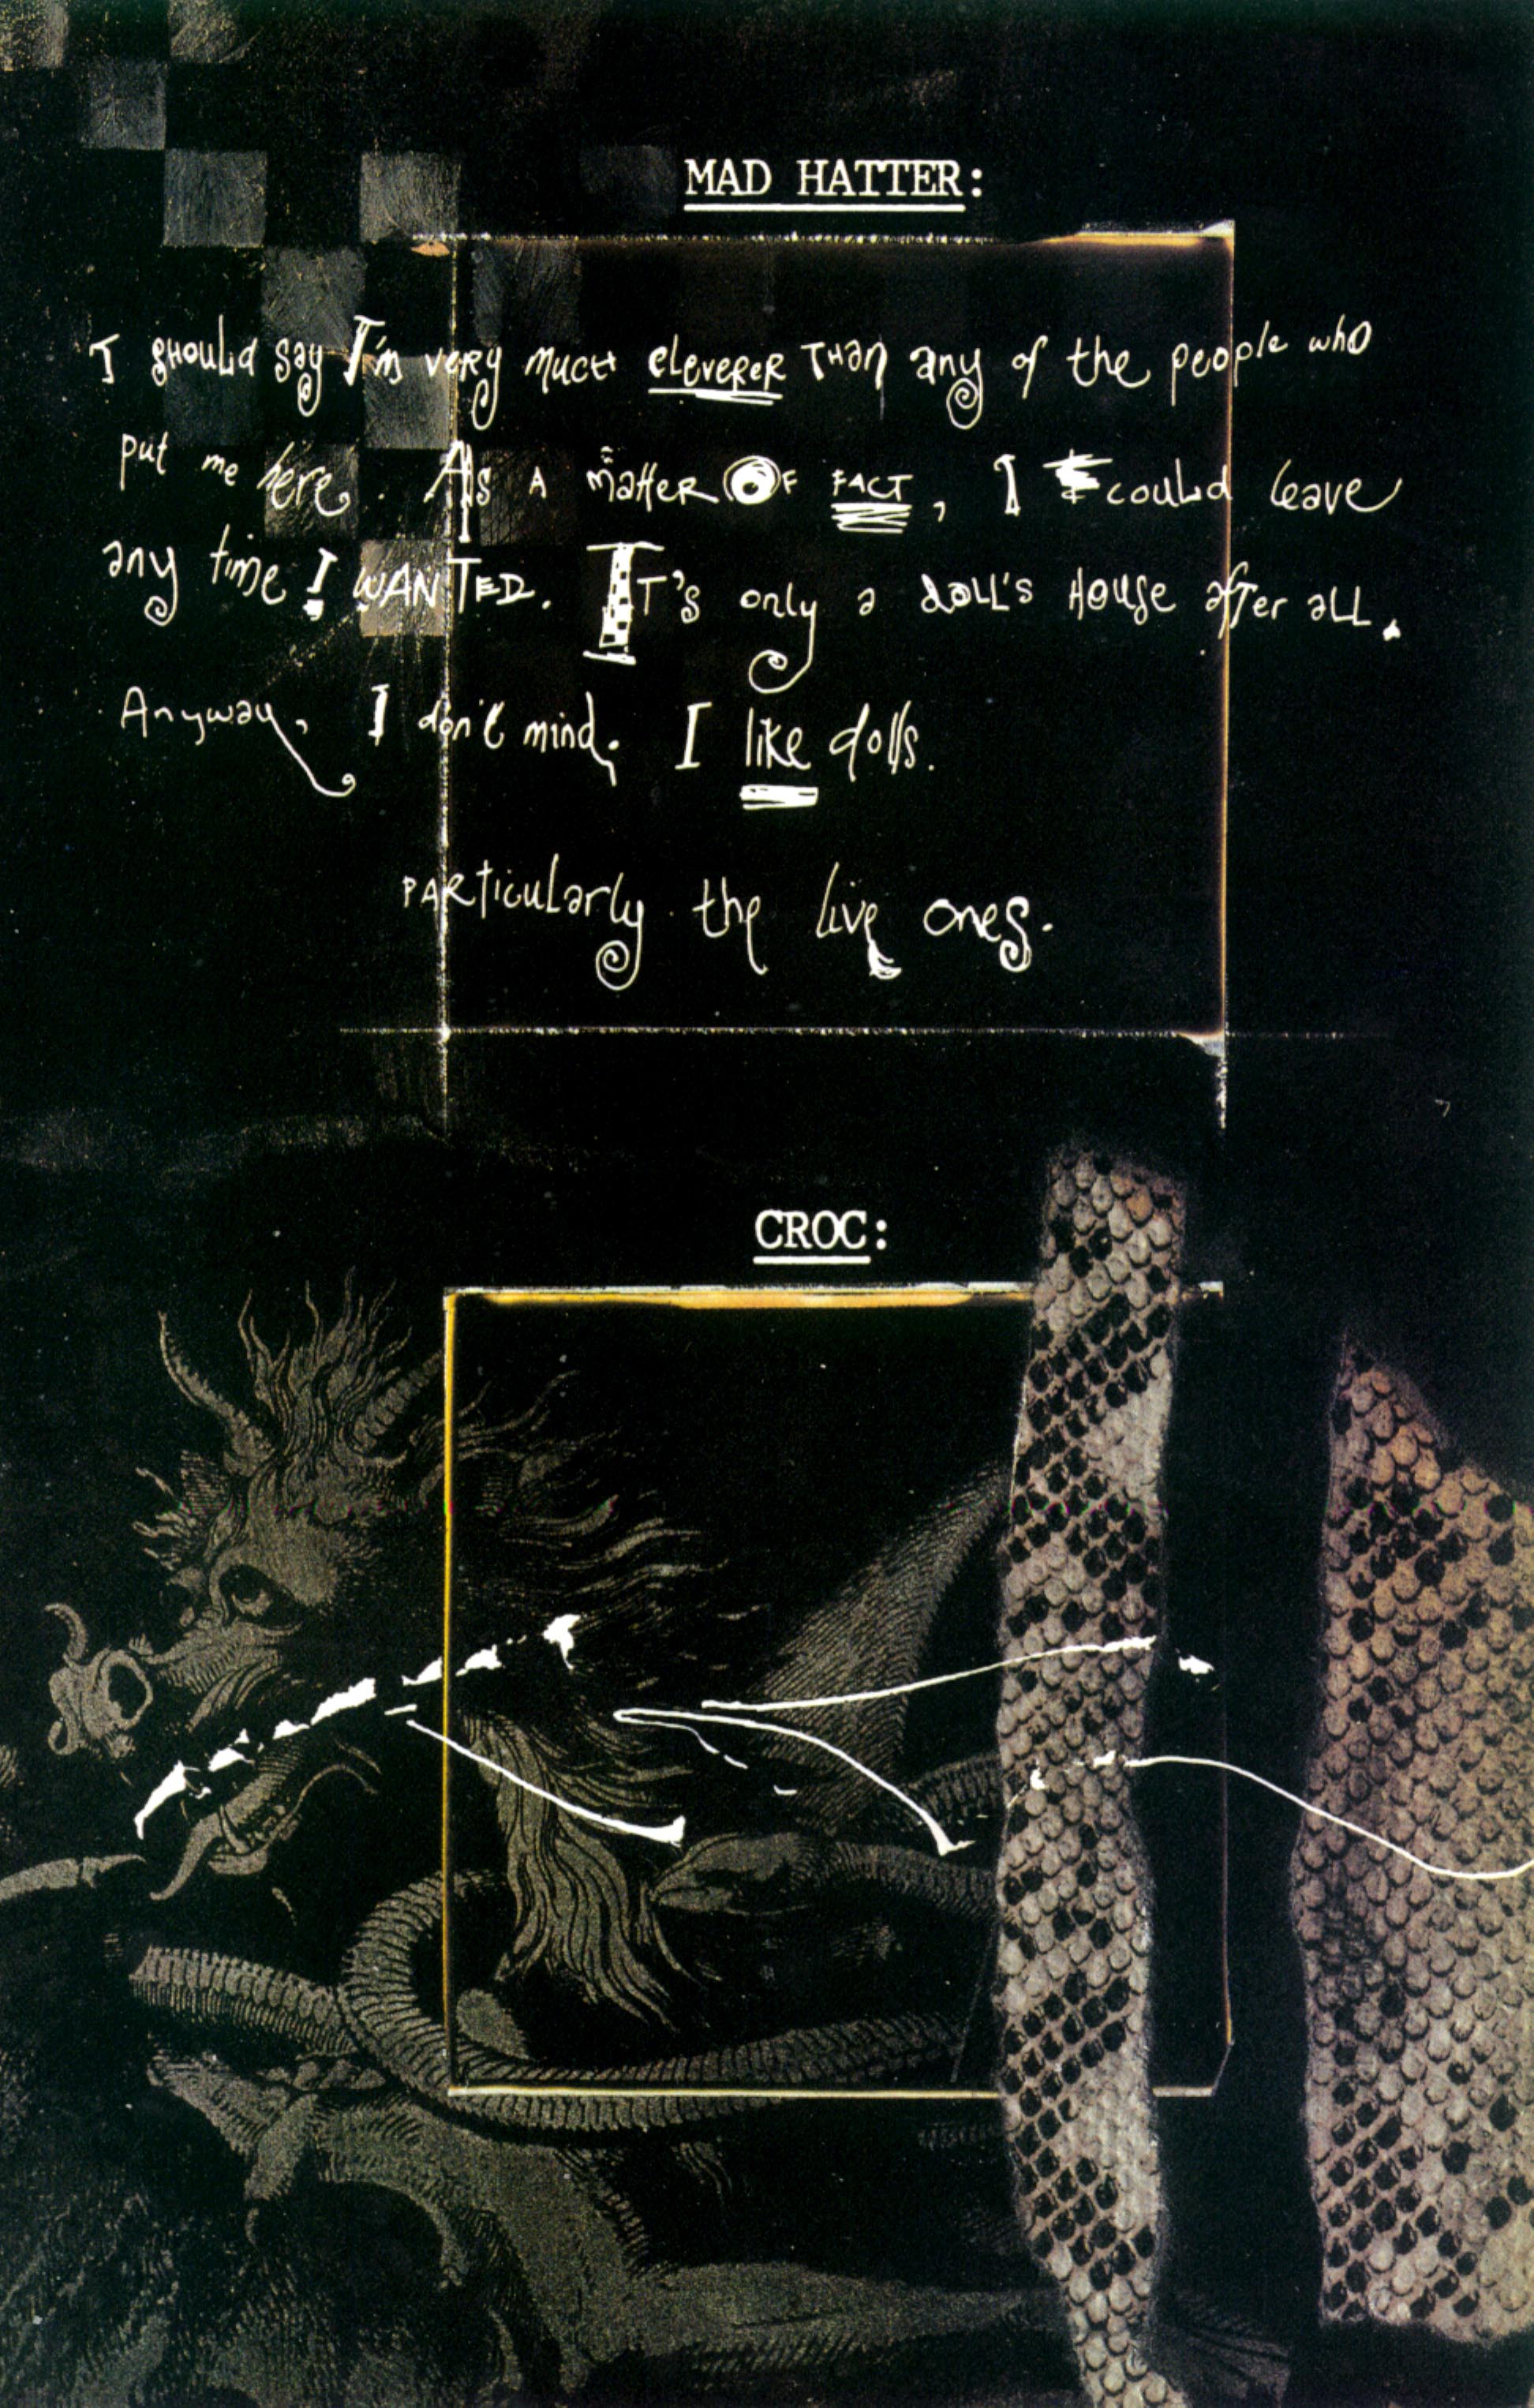 MAD HATTER:
I should say I'm very much cleverer than any of the people who
put me here. As a matter of fact, I could leave
any time I wanted. It's only a doll's house after all.
Anyway, I don't mind. I like dolls.
particularly the live ones.
CROC: